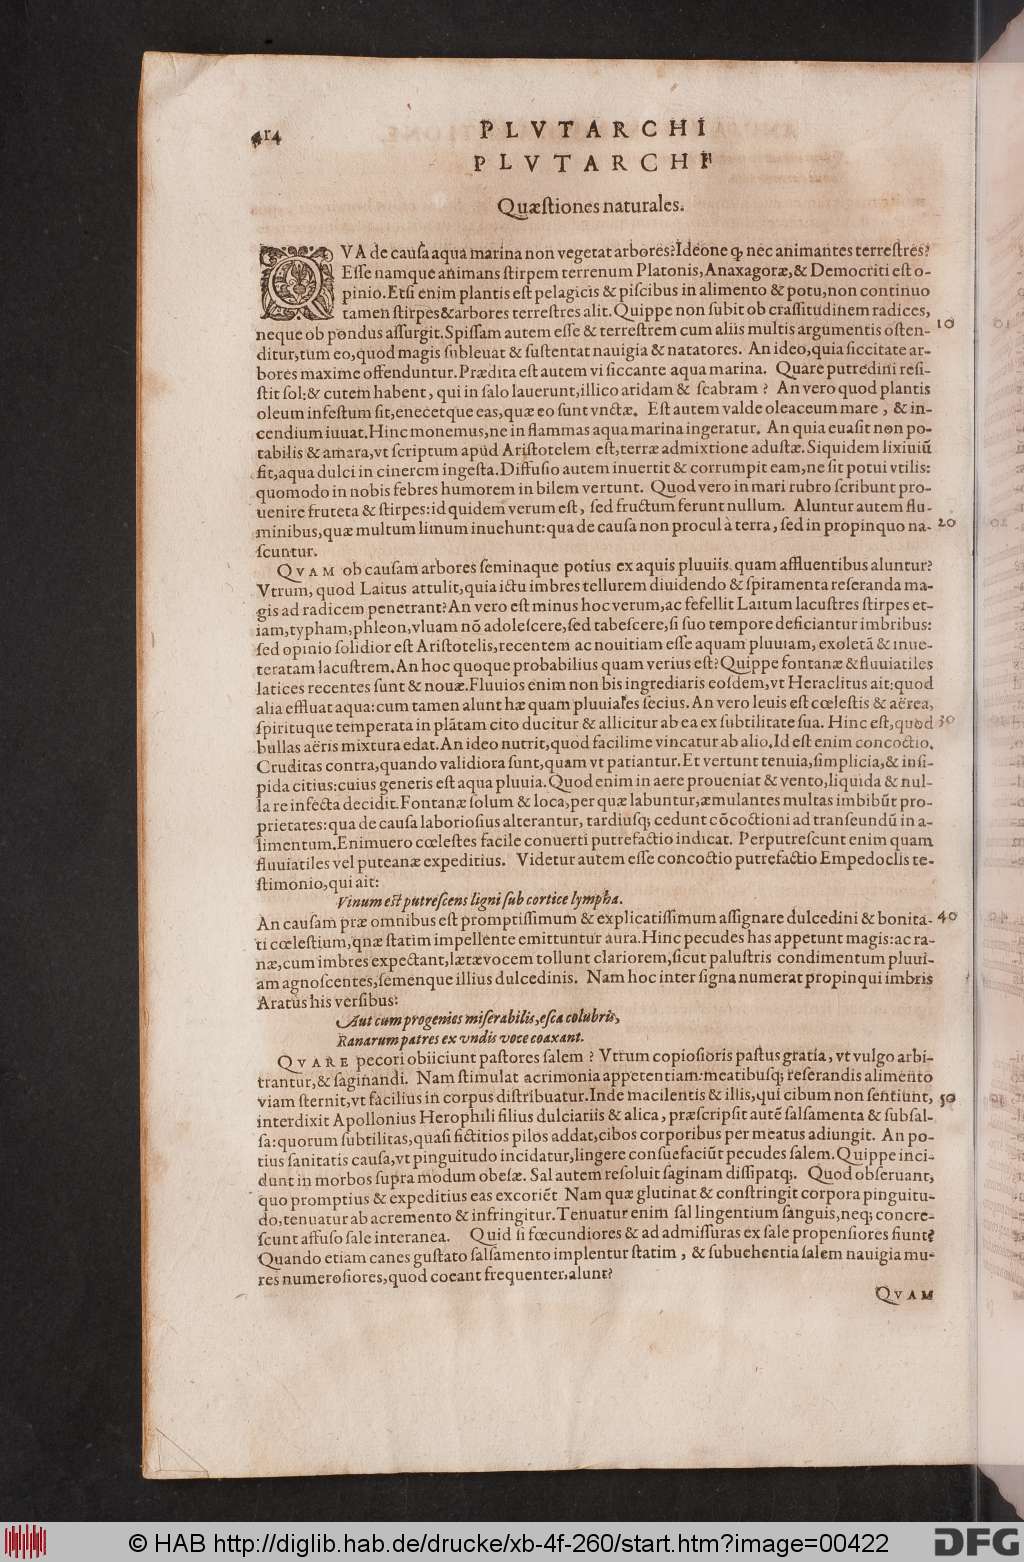 414
PLVTARCHI
PLVTARCHI
Quæſtiones naturales.
QVA de cauſa aqua marina non vegetat arbores? Ideone q; nec animantes terreſtres?
Eſſe namque animans ſtirpem terrenum Platonis, Anaxagoræ, & Democriti eſt o-
pinio. Etſi enim plantis eſt pelagicis & piſcibus in alimento & potu, non continuo
tamen ſtirpes & arbores terreſtres alit. Quippe non ſubit ob craſſitudinem radices,
neque ob pondus aſſurgit. Spiſſam autem eſſe & terreſtrem cum aliis multis argumentis oſten- 10
ditur, tum eo, quod magis ſubleuat & ſuſtentat nauigia & natatores. An ideo, quia ſiccitate ar-
bores maxime offenduntur. Prædita eſt autem vi ſiccante aqua marina. Quare putredini reſi-
ſtit ſol: & cutem habent, qui in ſalo lauerunt, illico aridam & ſcabram? An vero quod plantis
oleum infeſtum ſit, enecetque eas, quæ eo ſunt vnctæ. Eſt autem valde oleaceum mare, & in-
cendium iuuat. Hinc monemus, ne in flammas aqua marina ingeratur. An quia euaſit non po-
tabilis & amara, vt ſcriptum apud Ariſtotelem eſt, terræ admixtione aduſtæ. Siquidem lixiuiū
fit, aqua dulci in cinerem ingeſta. Diffuſio autem inuertit & corrumpit eam, ne ſit potui vtilis:
quomodo in nobis febres humorem in bilem vertunt. Quod vero in mari rubro ſcribunt pro-
uenire fruteta & ſtirpes: id quidem verum eſt, ſed fructum ferunt nullum. Aluntur autem flu-
minibus, quæ multum limum inuehunt: qua de cauſa non procul à terra, ſed in propinquo na- 20
ſcuntur.
QVAM ob cauſam arbores ſeminaque potius ex aquis pluuiis quam affluentibus aluntur?
Vtrum, quod Laitus attulit, quia ictu imbres tellurem diuidendo & ſpiramenta reſeranda ma-
gis ad radicem penetrant? An vero eſt minus hoc verum, ac fefellit Laitum lacuſtres ſtirpes et-
iam, typham, phleon, vluam nō adoleſcere, ſed tabeſcere, ſi ſuo tempore deficiantur imbribus:
ſed opinio ſolidior eſt Ariſtotelis, recentem ac nouitiam eſſe aquam pluuiam, exoletā & inue-
teratam lacuſtrem. An hoc quoque probabilius quam verius eſt? Quippe fontanæ & fluuiatiles
latices recentes ſunt & nouæ. Fluuios enim non bis ingrediaris eoſdem, vt Heraclitus ait: quod
alia effluat aqua: cum tamen alunt hæ quam pluuiales ſecius. An vero leuis eſt cœleſtis & aërea,
ſpirituque temperata in plātam cito ducitur & allicitur ab ea ex ſubtilitate ſua. Hinc eſt, quod 30
bullas aëris mixtura edat. An ideo nutrit, quod facilime vincatur ab alio. Id eſt enim concoctio.
Cruditas contra, quando validiora ſunt, quam vt patiantur. Et vertunt tenuia, ſimplicia, & inſi-
pida citius: cuius generis eſt aqua pluuia. Quod enim in aere proueniat & vento, liquida & nul-
la re infecta decidit. Fontanæ ſolum & loca, per quæ labuntur, æmulantes multas imbibūt pro-
prietates: qua de cauſa laborioſius alterantur, tardiuſq; cedunt cōcoctioni ad tranſeundū in a-
limentum. Enimuero cœleſtes facile conuerti putrefactio indicat. Perputreſcunt enim quam
fluuiatiles vel puteanæ expeditius. Videtur autem eſſe concoctio putrefactio Empedoclis te-
ſtimonio, qui ait:
Vinum eſt putreſcens ligni ſub cortice lympha.
An cauſam præ omnibus eſt promptiſſimum & explicatiſſimum aſſignare dulcedini & bonita- 40
ti cœleſtium, qnæ ſtatim impellente emittuntur aura. Hinc pecudes has appetunt magis: ac ra-
næ, cum imbres expectant, lætæ vocem tollunt clariorem, ſicut paluſtris condimentum pluui-
am agnoſcentes, ſemenque illius dulcedinis. Nam hoc inter ſigna numerat propinqui imbris
Aratus his verſibus:
Aut cum progenies miſerabilis, eſca colubris,
Ranarum patres ex vndis voce coaxant.
QVARE pecori obiiciunt paſtores ſalem? Vtrum copioſioris paſtus gratia, vt vulgo arbi-
trantur, & ſaginandi. Nam ſtimulat acrimonia appetentiam: meatibuſq; reſerandis alimento
viam ſternit, vt facilius in corpus diſtribuatur. Inde macilentis & illis, qui cibum non ſentiunt, 50
interdixit Apollonius Herophili filius dulciariis & alica, præſcripſit autē ſalſamenta & ſubſal-
ſa: quorum ſubtilitas, quaſi fictitios pilos addat, cibos corporibus per meatus adiungit. An po-
tius ſanitatis cauſa, vt pinguitudo incidatur, lingere conſuefaciūt pecudes ſalem. Quippe inci-
dunt in morbos ſupra modum obeſæ. Sal autem reſoluit ſaginam diſſipatq;. Quod obſeruant,
quo promptius & expeditius eas excoriēt Nam quæ glutinat & conſtringit corpora pinguitu-
do, tenuatur ab acremento & infringitur. Tenuatur enim ſal lingentium ſanguis, neq; concre-
ſcunt affuſo ſale interanea. Quid ſi fœcundiores & ad admiſſuras ex ſale propenſiores fiunt?
Quando etiam canes guſtato ſalſamento implentur ſtatim, & ſubuehentia ſalem nauigia mu-
res numeroſiores, quod coeant frequenter, alunt?
QVAM
© HAB http://diglib.hab.de/drucke/xb-4f-260/start.htm?image=00422
DFG